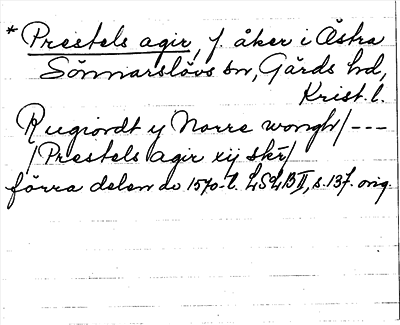 * Prestels agir, f. åker i Östra
Sönnarslövs sn, Gärds hd,
Krist. l.
Rugiordt y Norre wongh/ ---
/Prestels agir xij skr/
förra delen av 1570-t. LSLB II, s. 137. orig.